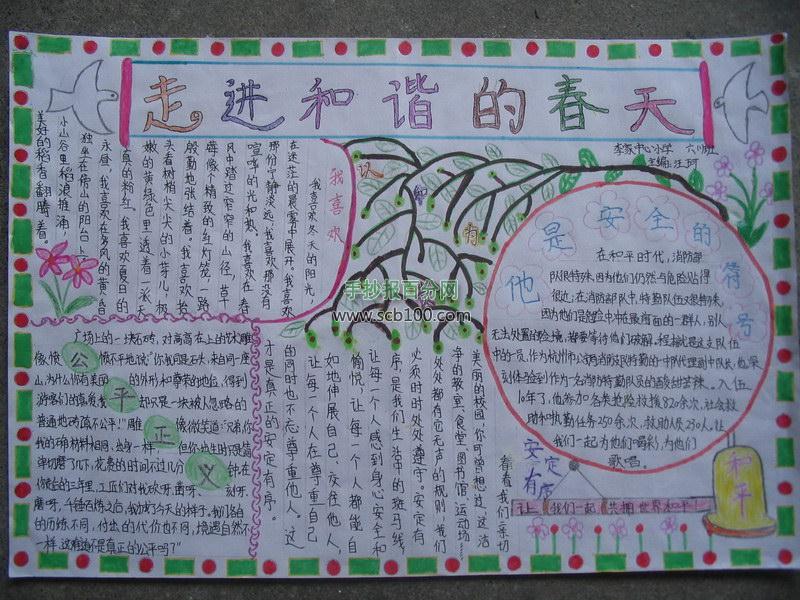 走进和谐的春天
李家中心小学 六(1)班
主编:汪珂
我喜欢
我喜欢冬天的阳光,
在迷茫的晨雾中展开。我喜欢
那份宁静淡远,我喜欢那没有
喧哗的光和热。我喜欢在春
风中踏过窄窄的山径,草
莓像个精致的红灯笼,一路
殷勤地张结着。我喜欢抬
头看树梢尖尖的小芽儿,极
嫩的黄绿色里透着一派天
真的粉红。我喜欢夏日的
永昼,我喜欢在多风的黄昏
独坐在傍山的阳台上。
小山谷里稻浪推涌,
美好的稻香翻腾着。
公平正义
广场上的一块石砖,对高高在上的艺术雕
像愤愤不平地说:“你我同是石头,来自同一座
山,为什么你有美丽的外形和尊荣的地位,得到
游客们的喜爱,我却只是一块被人忽略的
普通地砖?真不公平!”雕像微笑道:“兄弟,你
我的确材料相同,出身一样,但你出生时只是简
单切磨了几下,花费的时间不过几分钟。在
你做的三年里,工匠们对我砍呀、凿呀、刻呀、
磨呀,千锤百炼之后,我才有了今天的样子。我们各自
的历练不同,付出的代价也不同,境遇自然不
一样,这难道不是真正的公平吗?”
认
知
有
安定
有序
看着我们亲切
美丽的校园,你可曾想过,这洁
净的教室、食堂、图书馆、运动场
处处都有它无声的规则,我们
必须时时处处遵守。安定有
序,是我们生活中的斑马线,
让每一个人感到身心安全和
愉悦,让每一个人都能自
如地伸展自己,友往他人,
让每一个人在尊重自己
的同时也不忘尊重他人。这
才是真正的安定有序。
他是安全的符号
在和平时代,消防部
队很特殊,因为他们仍然与危险贴得
很近;在消防部队中,特勤队伍又很特殊,
因为他们是抢险中冲在最前面的一群人,别人
无法处置的险境,都要等待他们破解,程振波是这支队伍
中的一员,作为杭州市公安局消防支队特勤一中队代理副中队长,他深
刻体验到作为一名消防特勤队员的酸甜苦辣。入伍
10年了,他参加各类抢险救援820余次,社会救
助和执勤任务250余次,救助人质230人,让
我们一起为他们喝彩,为他们
歌唱。
和平
让我们一起共拥世界和平
手抄报百分网
www.scb100.com